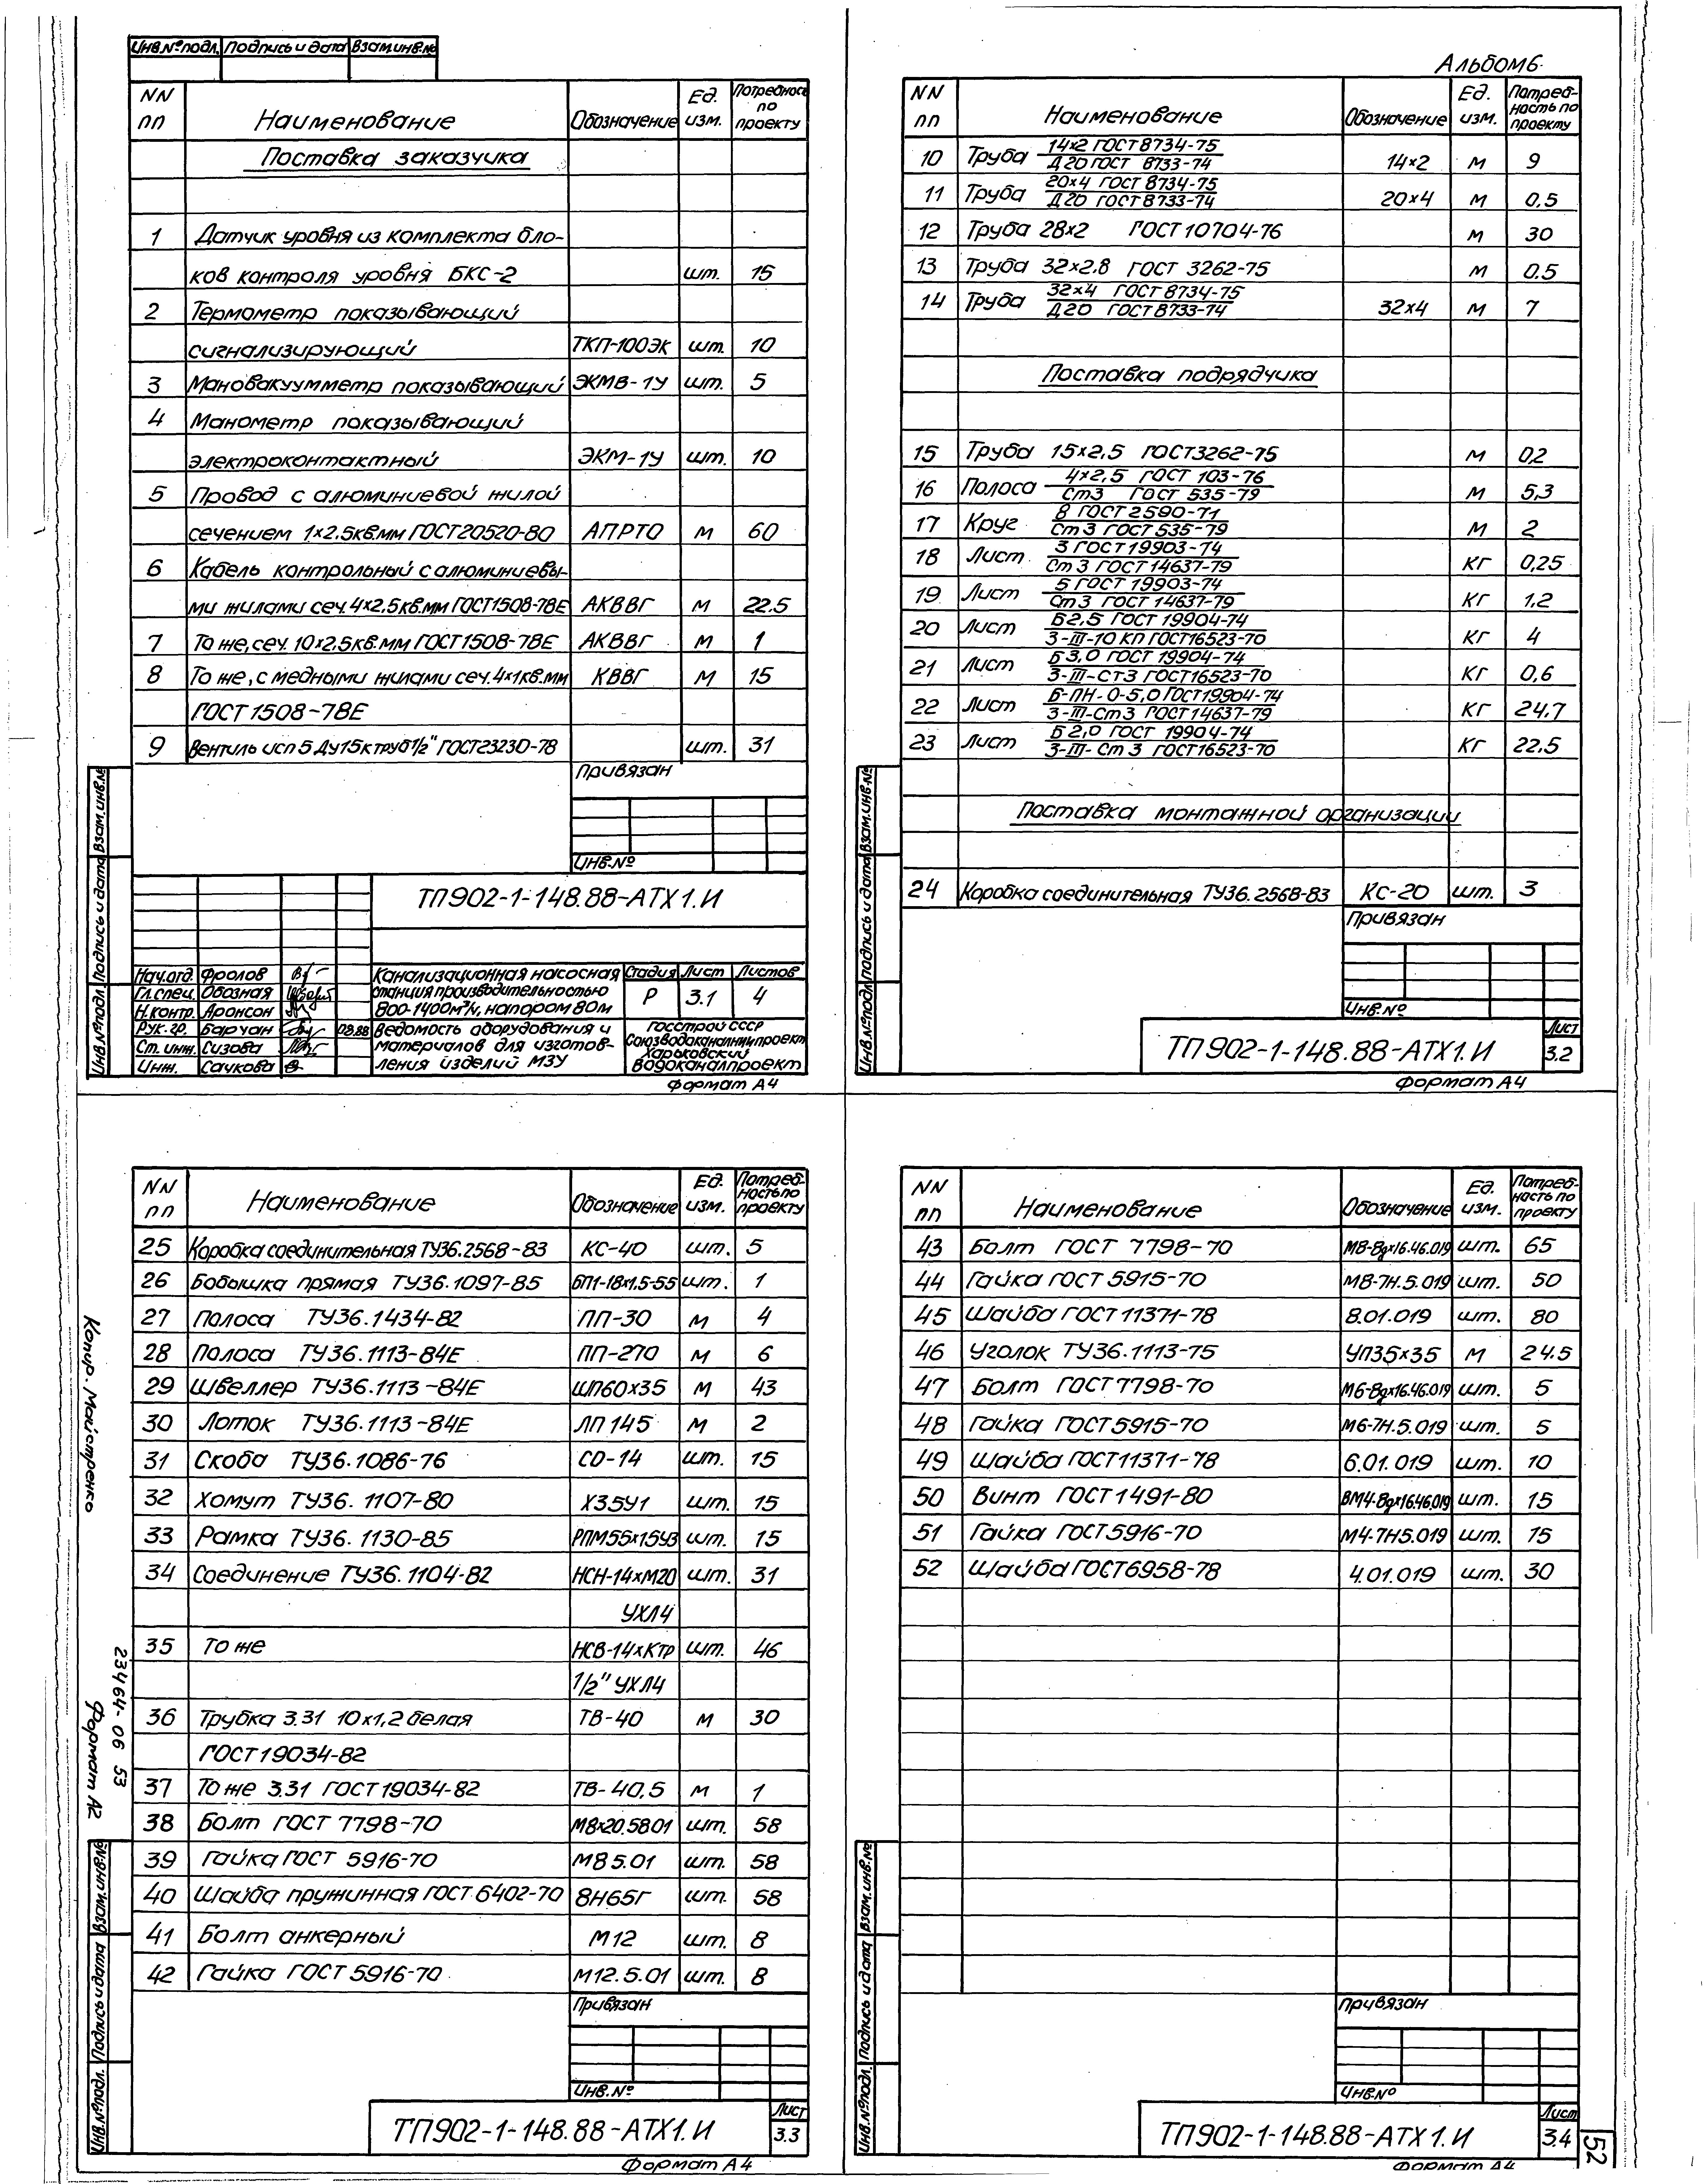 Инв.№подл. Подпись и дата Взам.инв.№
NN пп Наименование Обозначение Ед. изм. Потребность по проекту
Поставка заказчика
1 Датчик уровня из комплекта бло-
ков контроля уровня БКС-2 шт. 15
2 Термометр показывающий
сигнализирующий ТКП-100ЭК шт. 10
3 Мановакуумметр показывающий ЭКМВ-1У шт. 5
4 Манометр показывающий
электроконтактный ЭКМ-1У шт. 10
5 Провод с алюминиевой жилой
сечением 1×2,5кв.мм ГОСТ20520-80 АПРТО м 60
6 Кабель контрольный с алюминиевы-
ми жилами сеч. 4×2,5кв.мм ГОСТ1508-78Е АКВВГ м 22.5
7 То же, сеч. 10×2.5кв.мм ГОСТ1508-78Е АКВВГ м 1
8 То же, с медными жилами сеч. 4×1кв.мм КВВГ м 15
ГОСТ 1508-78Е
9 Вентиль исп 5 Ду15к труб 1/2" ГОСТ23230-78 шт. 31
Привязан
Инв.№
ТП902-1-148.88-АТХ1.И
Нач.отд. Фролов
Гл.спец. Обозная
Н.контр. Аронсон
Рук.гр. Барчан 08.88
Ст.инж. Сизова
Инж. Сачкова
Канализационная насосная
станция производительностью
800-1400м³/ч, напором 80м
Стадия Лист Листов
Р 3.1 4
Ведомость оборудования и
материалов для изготов-
ления изделий МЗУ
Госстрой СССР
Союзводоканалниипроект
Харьковский
Водоканалпроект
Формат А4
Инв.№подл. Подпись и дата Взам.инв.№
Альбом 6
NN пп Наименование Обозначение Ед. изм. Потреб-ность по проекту
10 Труба 14×2 ГОСТ 8734-75 / Д20 ГОСТ 8733-74 14×2 м 9
11 Труба 20×4 ГОСТ 8734-75 / Д20 ГОСТ 8733-74 20×4 м 0,5
12 Труба 28×2 ГОСТ 10704-76 м 30
13 Труба 32×2.8 ГОСТ 3262-75 м 0.5
14 Труба 32×4 ГОСТ 8734-75 / Д20 ГОСТ 8733-74 32×4 м 7
Поставка подрядчика
15 Труба 15×2,5 ГОСТ3262-75 м 0,2
16 Полоса 4×2,5 ГОСТ 103-76 / Ст3 ГОСТ 535-79 м 5,3
17 Круг 8 ГОСТ 2590-71 / Ст3 ГОСТ 535-79 м 2
18 Лист 3 ГОСТ 19903-74 / Ст3 ГОСТ 14637-79 кг 0,25
19 Лист 5 ГОСТ 19903-74 / Ст3 ГОСТ 14637-79 кг 1,2
20 Лист Б2,5 ГОСТ 19904-74 / 3-III-10 КП ГОСТ16523-70 кг 4
21 Лист Б3,0 ГОСТ 19904-74 / 3-III-СТ3 ГОСТ16523-70 кг 0,6
22 Лист Б-ПН-0-5,0 ГОСТ19904-74 / 3-III-Ст3 ГОСТ14637-79 кг 24.7
23 Лист Б2,0 ГОСТ 19904-74 / 3-III-Ст3 ГОСТ16523-70 кг 22.5
Поставка монтажной организации
24 Коробка соединительная ТУ36.2568-83 КС-20 шт. 3
Привязан
Инв.№
ТП902-1-148.88-АТХ1.И
Лист 3.2
Формат А4
Инв.№подл. Подпись и дата Взам.инв.№
NN пп Наименование Обозначение Ед. изм. Потреб-ность по проекту
25 Коробка соединительная ТУ36.2568-83 КС-40 шт. 5
26 Бобышка прямая ТУ36.1097-85 БП1-18х1.5-55 шт. 1
27 Полоса ТУ36.1434-82 ПП-30 м 4
28 Полоса ТУ36.1113-84Е ПП-270 м 6
29 Швеллер ТУ36.1113-84Е ШП60×35 м 43
30 Лоток ТУ36.1113-84Е ЛП 145 м 2
31 Скоба ТУ36.1086-76 СО-14 шт. 15
32 Хомут ТУ36.1107-80 Х35У1 шт. 15
33 Рамка ТУ36.1130-85 РПМ55х15У3 шт. 15
34 Соединение ТУ36.1104-82 НСН-14хМ20 шт. 31
УХЛ4
35 То же НСВ-14хКтр шт. 46
1/2" УХЛ4
36 Трубка 3.31 10×1,2 белая ТВ-40 м 30
ГОСТ19034-82
37 То же 3.31 ГОСТ19034-82 ТВ-40,5 м 1
38 Болт ГОСТ 7798-70 М8×20.58.01 шт. 58
39 Гайка ГОСТ 5916-70 М8 5.01 шт. 58
40 Шайба пружинная ГОСТ 6402-70 8Н65Г шт. 58
41 Болт анкерный М12 шт. 8
42 Гайка ГОСТ 5916-70 М12.5.01 шт. 8
Привязан
Инв.№
ТП902-1-148.88-АТХ1.И
Лист 3.3
Формат А4
Инв.№подл. Подпись и дата Взам.инв.№
Копир. Майстренко
23464-06 53
Формат А2
NN пп Наименование Обозначение Ед. изм. Потреб-ность по проекту
43 Болт ГОСТ 7798-70 М8-8gх16.46.019 шт. 65
44 Гайка ГОСТ 5915-70 М8-7Н.5.019 шт. 50
45 Шайба ГОСТ 11371-78 8.01.019 шт. 80
46 Уголок ТУ36.1113-75 УП35×35 м 24.5
47 Болт ГОСТ 7798-70 М6-8gх16.46.019 шт. 5
48 Гайка ГОСТ 5915-70 М6-7Н.5.019 шт. 5
49 Шайба ГОСТ11371-78 6.01.019 шт. 10
50 Винт ГОСТ 1491-80 ВМ4-8gх16.46.019 шт. 15
51 Гайка ГОСТ 5916-70 М4-7Н5.019 шт. 15
52 Шайба ГОСТ6958-78 4.01.019 шт. 30
Привязан
Инв.№
ТП902-1-148.88-АТХ1.И
Лист 3.4
Формат А4
Инв.№подл. Подпись и дата Взам.инв.№
52